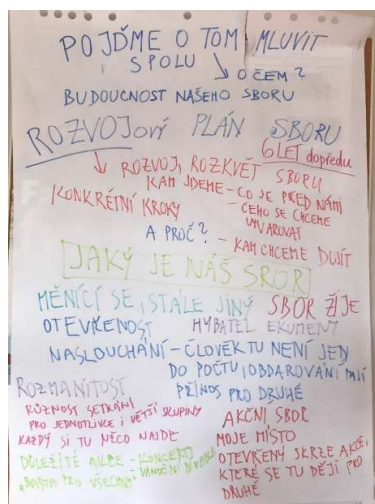 POJĎME O TOM MLUVIT
SPOLU ↘ O ČEM?
BUDOUCNOST NAŠEHO SBORU
ROZVOJOVÝ PLÁN SBORU
6 LET dopředu
↓ ROZVOJ, ROZKVĚT SBORU
KAM JDEME - CO JE PŘED NÁMI
KONKRÉTNÍ KROKY
- ČEHO SE CHCEME VYVAROVAT
A PROČ? - KAM CHCEME DOJÍT
JAKÝ JE NÁŠ SBOR
MĚNÍCÍ SE, STÁLE JINÝ
SBOR ŽIJE
OTEVŘENOST
HYBATEL EKUMENY
NASLOUCHÁNÍ - ČLOVĚK TU NENÍ JEN
DO POČTU, OBDAROVÁNÍ
PŘÍNOS PRO DRUHÉ
ROZMANITOST
RŮZNOST SETKÁNÍ
PRO JEDNOTLIVCE I VĚTŠÍ SKUPINY
KAŽDÝ SI TU NĚCO NAJDE
DŮLEŽITÉ AKCE - KONCERTY
PRO VŠECHNY - VÁNOČNÍ
AKČNÍ SBOR
MOJE MÍSTO
OTEVŘENÝ SKRZE AKCE,
KTERÉ SE TU DĚJÍ PRO
DRUHÉ